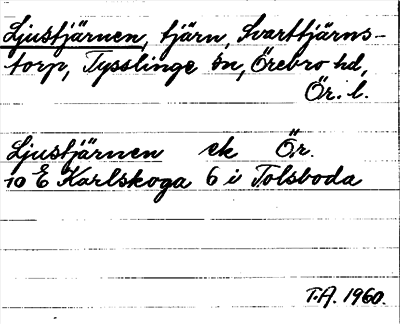 Ljustjärnen, tjärn, Svarttjärns-
torp, Tysslinge sn, Örebro hd,
Ör. l.
Ljustjärnen ek Ör.
10 E Karlskoga 6 i Tolsboda
T.A. 1960.